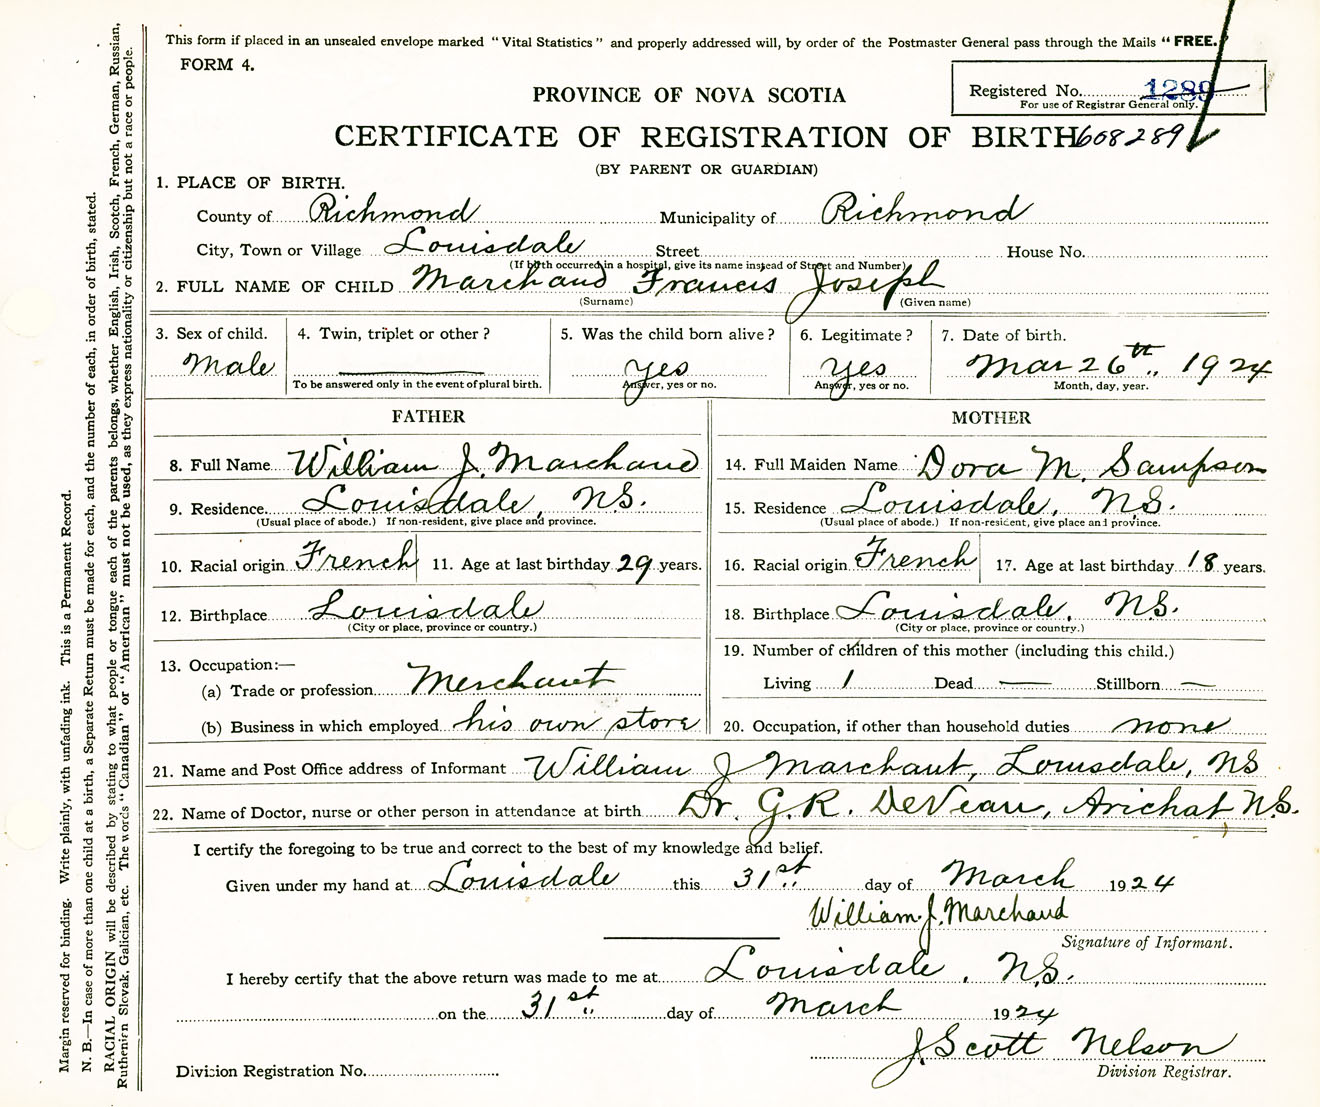 This form if placed in an unsealed envelope marked "Vital Statistics" and properly addressed will, by order of the Postmaster General pass through the Mails "FREE."
FORM 4.
Registered No. 1289
For use of Registrar General only.
PROVINCE OF NOVA SCOTIA
CERTIFICATE OF REGISTRATION OF BIRTH 608289
(BY PARENT OR GUARDIAN)
1. PLACE OF BIRTH.
County of Richmond Municipality of Richmond
City, Town or Village Louisdale Street House No.
(If birth occurred in a hospital, give its name instead of Street and Number)
2. FULL NAME OF CHILD Marchand Francis Joseph
(Surname) (Given name)
3. Sex of child. 4. Twin, triplet or other? 5. Was the child born alive? 6. Legitimate? 7. Date of birth.
Male Yes Yes Mar 26th 1924
To be answered only in the event of plural birth. Answer, yes or no. Answer, yes or no. Month, day, year.
FATHER MOTHER
8. Full Name William J. Marchand 14. Full Maiden Name Dora M. Sampson
9. Residence. Louisdale, N.S. 15. Residence Louisdale, N.S.
(Usual place of abode.) If non-resident, give place and province. (Usual place of abode.) If non-resident, give place and province.
10. Racial origin French 11. Age at last birthday 29 years. 16. Racial origin French 17. Age at last birthday 18 years.
12. Birthplace Louisdale 18. Birthplace Louisdale, N.S.
(City or place, province or country.) (City or place, province or country.)
13. Occupation:— 19. Number of children of this mother (including this child.)
(a) Trade or profession Merchant Living 1 Dead — Stillborn —
(b) Business in which employed his own store 20. Occupation, if other than household duties none
21. Name and Post Office address of Informant William J Marchant, Louisdale, NS
22. Name of Doctor, nurse or other person in attendance at birth Dr. G.R. DeVeau, Arichat N.S.
I certify the foregoing to be true and correct to the best of my knowledge and belief.
Given under my hand at Louisdale this 31st day of March 1924
William J. Marchand
Signature of Informant.
I hereby certify that the above return was made to me at Louisdale, N.S.
on the 31st day of March 1924
J. Scott Nelson
Division Registration No. Division Registrar.
Margin reserved for binding. Write plainly, with unfading ink. This is a Permanent Record.
N. B.—In case of more than one child at a birth, a Separate Return must be made for each, and the number of each, in order of birth, stated.
RACIAL ORIGIN will be described by stating to what people or tongue each of the parents belongs, whether English, Irish, Scotch, French, German, Russian,
Ruthenian Slovak, Galician, etc. The words "Canadian" or "American" must not be used, as they express nationality or citizenship but not a race or people.